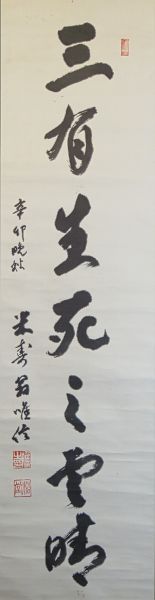 三有生死之雲晴
辛卯晩秋
米寿翁唯信